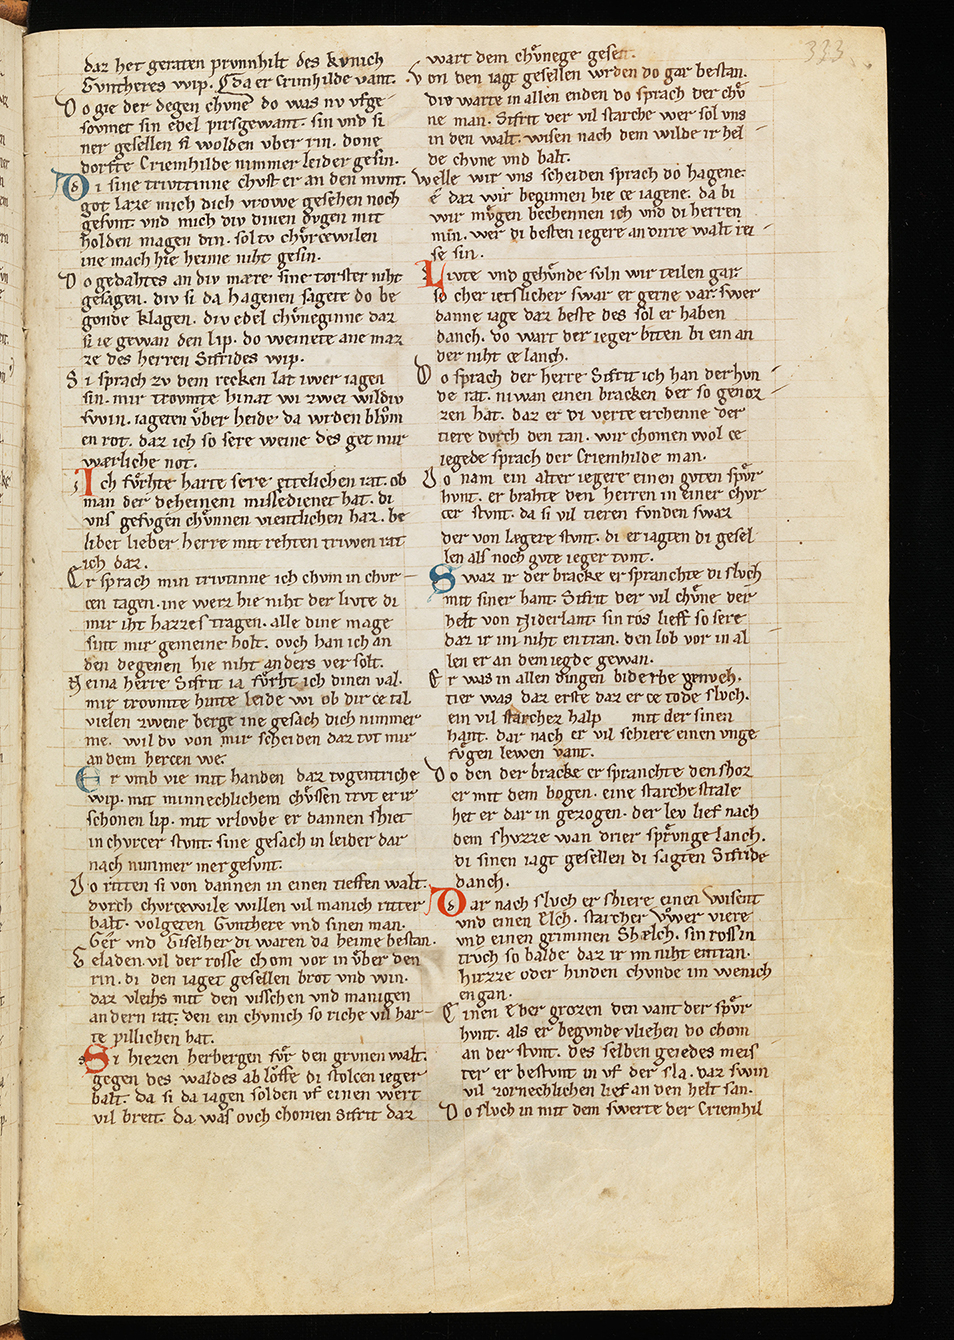 333
daz het geraten prvnnhilt des kvnich
Gvntheres wip. Da er Crimhilde vant.
Do gie der degen chvne do was nv vfge
sovmet sin edel pirsgewant. sin vnd si
ner gesellen si wolden vber rin. done
dorfte Criemhilde nimmer leider gesin.
Di sine trivtinne chvst er an den mvnt.
got laze mich dich vrowe gesehen noch
gesvnt. vnd mich div dinen ovgen mit
holden magen din. soltv chvrcewilen
ine mach hie heime niht gesin.
Do gedahtes an div mære sine torster niht
gesagen. div si da hagenen sagete do be
gonde klagen. div edel chvneginne daz
si ie gewan den lip. do weinete ane maz
ze des herren Sifrides wip.
Si sprach zv dem recken lat iwer iagen
sin. mir trovmte hinat wi zwei wildiv
swin. iageten vber heide da wrden blvm
en rot. daz ich so sere weine des get mir
wærliche not.
Ich fvrhte harte sere ettelichen rat. ob
man der deheinem missedienet hat. di
vns gefvgen chvnnen vientlichen haz. be
libet lieber herre mit rehten triwen rat
ich daz.
Er sprach min trivtinne ich chvm in chvr
cen tagen. ine weiz hie niht der livte di
mir iht hazzes tragen. alle dine mage
sint mir gemeine holt. ovch han ich an
den degenen hie niht anders versolt.
Neina herre Sifrit ia fvrht ich dinen val.
mir trovmte hinte leide wi ob dir ce tal
vielen zwene berge ine gesach dich nimmer
me. wil dv von mir scheiden daz tvt mir
an dem hercen we.
Er vmb vie mit handen daz tvgentriche
wip. mit minnechlichem chvssen trvt er ir
schonen lip. mit vrlovbe er dannen shiet
in chvrcer stvnt. sine gesach in leider dar
nach nimmer mer gesvnt.
Do ritten si von dannen in einen tieffen walt.
dvrch chvrcewile willen vil manich ritter
balt. volgeten Gvnthere vnd sinen man.
Gêr vnd Giselher di waren da heime bestan.
Geladen vil der rosse chom vor in vber den
rin. di den iaget gesellen brot vnd win.
daz vleihs mit den visschen vnd manigen
andern rat. den ein chvnich so riche vil har
te pillichen hat.
Si hiezen herbergen fvr den grvnen walt.
gegen des waldes abloffe di stolcen ieger
balt. da si da iagen solden vf einen wert
vil breit. da was ovch chomen Sifrit daz
wart dem chvnege geseit.
Von den iagt gesellen wrden do gar bestan.
div warte in allen enden do sprach der chv
ne man. Sifrit der vil starche wer sol vns
in den walt. wisen nach dem wilde ir hel
de chvne vnd balt.
Welle wir vns scheiden sprach do hagene.
ê daz wir beginnen hie ce iagene. da bi
wir mvgen bechennen ich vnd di herren
min. wer di besten iegere an dirre walt rei
se sin.
Livte vnd gehvnde svln wir teilen gar
so cher ietslicher swar er gerne var. swer
danne iage daz beste des sol er haben
danch. do wart der ieger biten bi ein an
der niht ce lanch.
Do sprach der herre Sifrit ich han der hvn
de rat. niwan einen bracken der so genoz
zen hat. daz er di verte erchenne der
tiere dvrch den tan. wir chomen wol ce
iegede sprach der Criemhilde man.
Do nam ein alter iegere einen gvten spvr
hvnt. er brahte den herren in einer chvr
cer stvnt. da si vil tieren fvnden swaz
der von lægere stvnt. di er iagten di gesel
len als noch gvte ieger tvnt.
Swaz ir der bracke er spranchte di slvch
mit siner hant. Sifrit der vil chvne der
helt von Niderlant. sin ros lieff so sere
daz ir im niht entran. den lob vor in al
len er an dem iegde gewan.
Er was in allen dingen biderbe genveh.
tier was daz erste daz er ce tode slvch.
ein vil starchez halp mit der sinen
hant. dar nach er vil schiere einen vnge
fvgen lewen vant.
Do den der bracke er spranchte den shoz
er mit dem bogen. eine starche strale
het er dar in gezogen. der lev lief nach
dem shvzze wan drier sprvnge lanch.
di sinen iagt gesellen di sagten Sifride
danch.
Dar nach slvch er shiere einen wisent
vnd einen Elch. starcher vwer viere
vnd einen grimmen Shelch. sin ross in
trvch so balde daz ir im niht entran.
hirzze oder hinden chvnde im wenich
engan.
Einen eber grozen den vant der spvr
hvnt. als er begvnde vliehen do chom
an der stvnt. des selben geiedes meis
ter er bestvnt in vf der sla. daz swin
vil zornechlichen lief an den helt san.
Do slvch in mit dem swerte der Criemhil